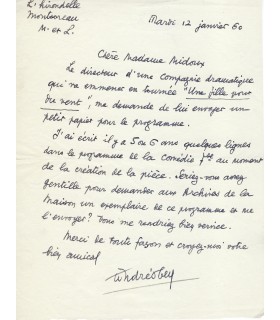 L'hirondelle
Montsoreau
M. et L.
Mardi 12 janvier 60
Chère Madame Midoux
Le directeur d'une compagnie dramatique
qui va emmener en tournée "Une fille pour
du vent", me demande de lui envoyer un
petit papier pour le programme.
J'ai écrit il y a 5 ou 6 ans quelques lignes
dans le programme de la comédie fse au moment
de la création de la pièce. Seriez-vous assez
gentille pour demander aux Archives de la
Maison un exemplaire de ce programme et me
l'envoyer? Vous me rendriez bien service.
Merci de toute façon et croyez-moi votre
bien amical
André Obey